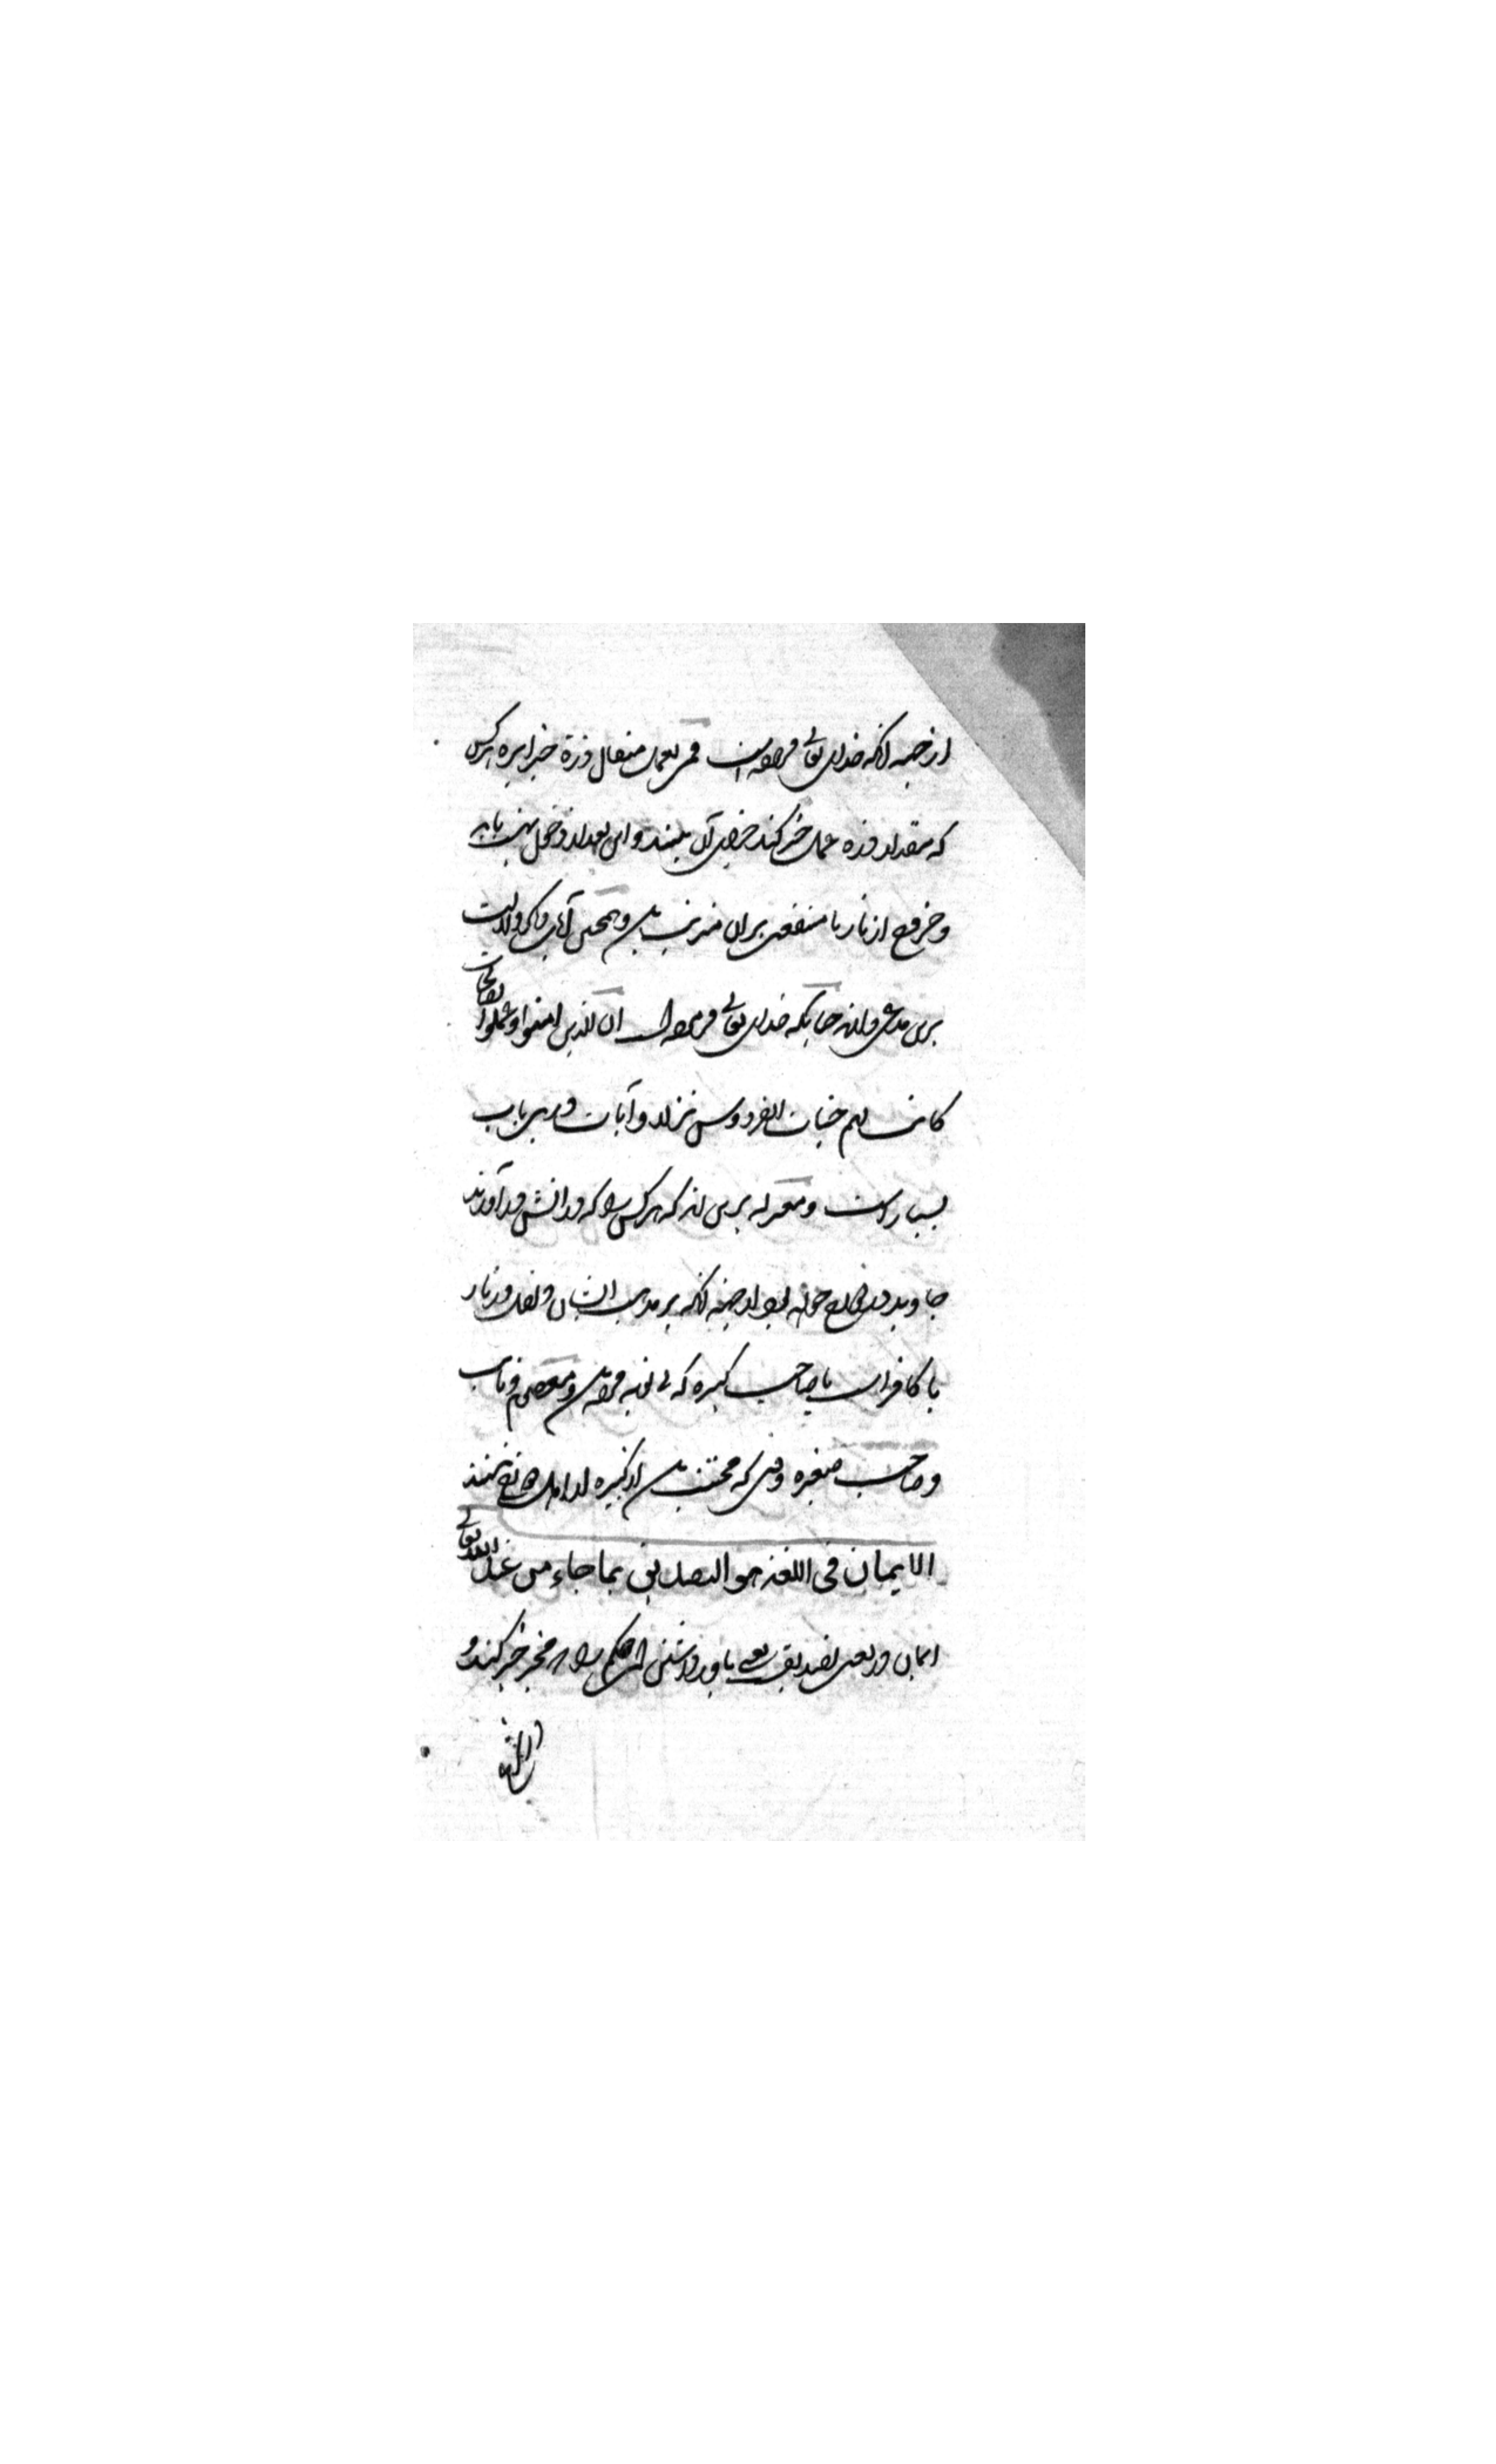 از جهة آنکه خدای تعالی فرموده است فمن یعمل مثقال ذرة خیرا یره هرکس
که مقدار ذره عمل خیر کند جزای آن بیند و این بعد از دخول بهشت باید
و خروج از نار تا منفعتی بران مترتب باشد و همچنین آیات دیگر دلالت
برین مدعی دارد چنانکه خدای تعالی فرموده ان الذین امنوا وعملوا الصالحات
کانت لهم جنات الفردوس نزلا و آیات درین باب
بسیار است و معتزله برین اند که هر کس را که در آتش در آورند
جاوید در خواهد بود از جهة آنکه بر مذهب ایشان در نار
یا کافر است یا صاحب کبیره که بی توبه مرده باشد و معصوم و تایب
و صاحب صغیره وقتی که مجتنب باشد از کبیره از اهل نیستند
الایمان فی اللغة هو التصدیق بما جاء من عند الله تعالی
ایمان در لغت تصدیق یعنی باور داشتن آن حکم را که مخبر خبر کند و